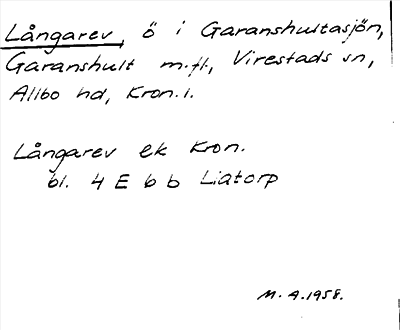 Långarev, ö i Garanshultasjön,
Garanshult m.fl., Virestads sn,
Allbo hd, Kron. l.
Långarev ek Kron.
bl. 4 E 6 b Liatorp
M. A. 1958.